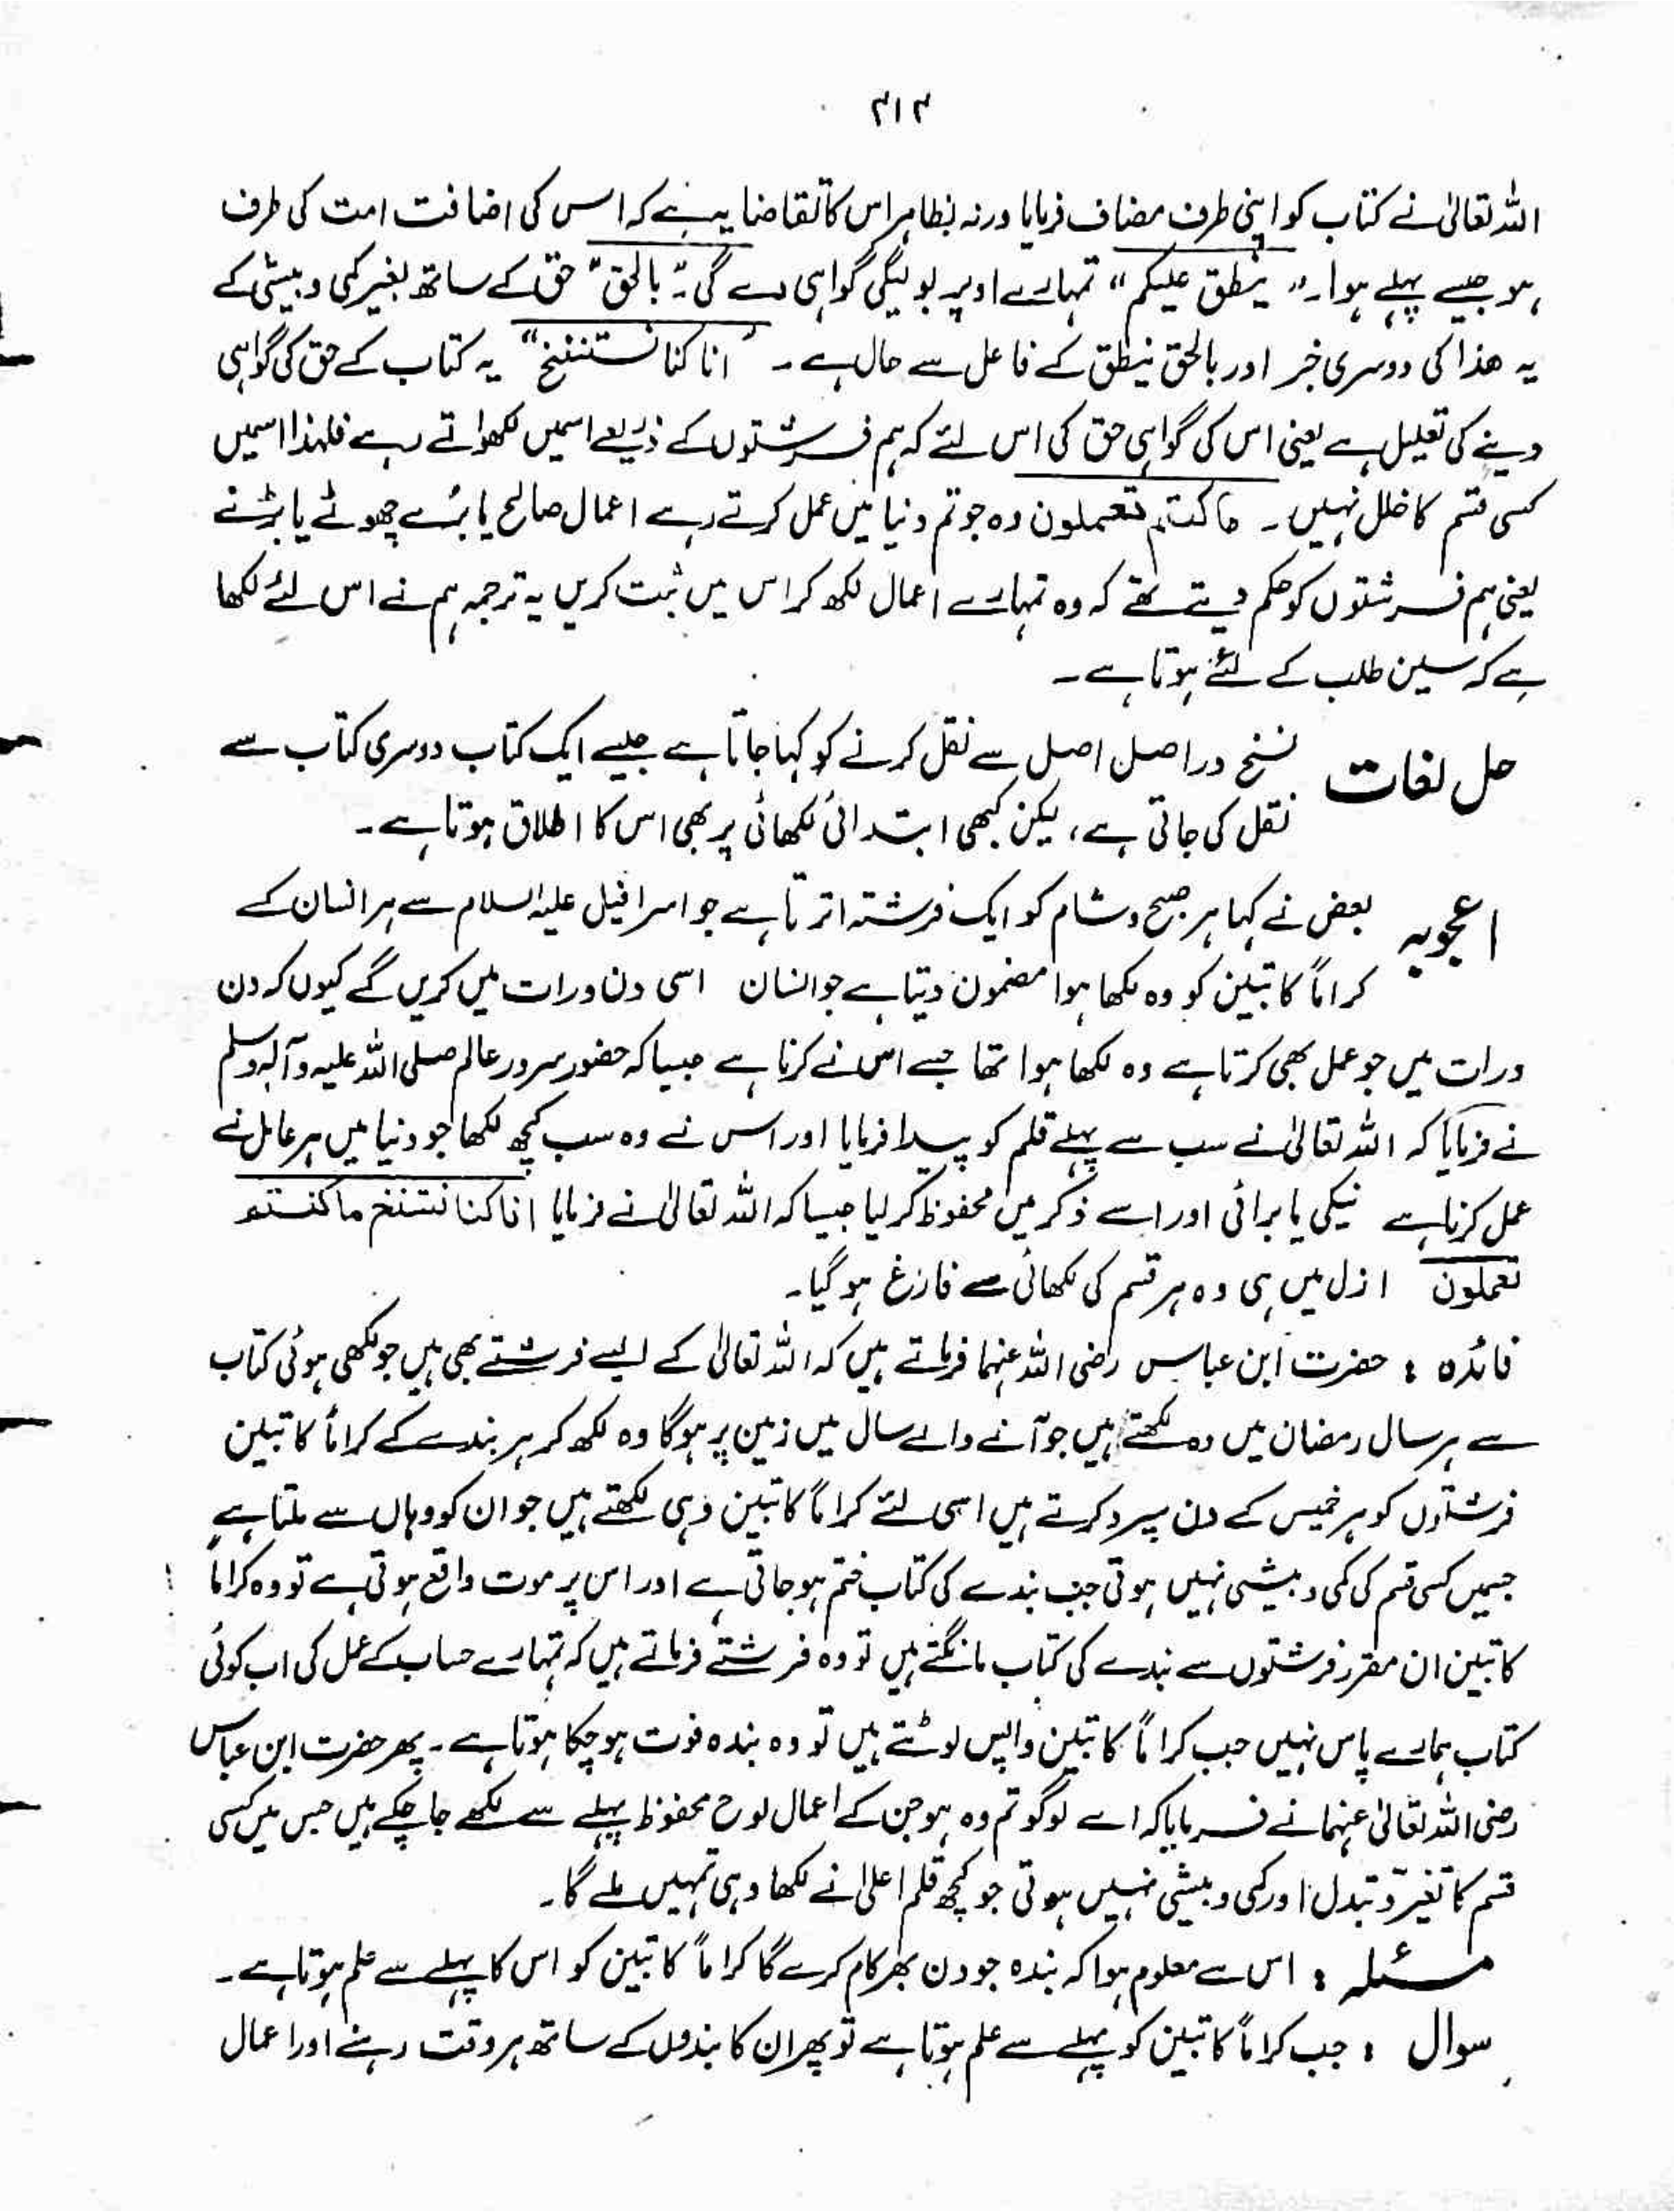 ۳۱۳
اللہ تعالیٰ نے کتاب کو اپنی طرف مضاف فرمایا ورنہ بظاہر اس کا تقاضا یہ ہے کہ اس کی اضافت امت کی طرف
ہو جیسے پہلے ہوا۔ " ینطق علیکم " تمہارے اوپر بولیگی گواہی دے گی۔ " بالحق " حق کے ساتھ بغیر کمی و بیشی کے
یہ ھذا کی دوسری خبر اور بالحق ینطق کے فاعل سے حال ہے ۔ " انا کنا نستنسخ " یہ کتاب کے حق کی گواہی
دینے کی تعلیل ہے یعنی اس کی گواہی حق کی اس لئے کہ ہم فرشتوں کے ذریعے اسمیں لکھواتے رہے فلہذا اسمیں
کسی قسم کا خلل نہیں ۔ ما کنتم تعملون وہ جو تم دنیا میں عمل کرتے رہے اعمال صالح یا بُرے چھوٹے یا بڑے
یعنی ہم فرشتوں کو حکم دیتے تھے کہ وہ تمہارے اعمال لکھ کر اس میں ثبت کریں یہ ترجمہ ہم نے اس لئے لکھا
ہے کہ سین طلب کے لئے ہوتا ہے ۔
حل لغات نسخ دراصل اصل سے نقل کرنے کو کہا جاتا ہے جیسے ایک کتاب دوسری کتاب سے
نقل کی جاتی ہے، لیکن کبھی ابتدائی لکھائی پر بھی اس کا اطلاق ہوتا ہے ۔
اعجوبہ بعض نے کہا ہر صبح و شام کو ایک فرشتہ اترتا ہے جو اسرافیل علیہ السلام سے ہر انسان کے
کراماً کاتبین کو وہ لکھا ہوا مضمون دیتا ہے جو انسان اسی دن و رات میں کریں گے کیوں کہ دن
ورات میں جو عمل بھی کرتا ہے وہ لکھا ہوا تھا جسے اس نے کرنا ہے جیسا کہ حضور سرور عالم صلی اللہ علیہ وآلہ وسلم
نے فرمایا کہ اللہ تعالیٰ نے سب سے پہلے قلم کو پیدا فرمایا اور اس نے وہ سب کچھ لکھا جو دنیا میں ہر عامل نے
عمل کرنا ہے نیکی یا برائی اور اسے ذکر میں محفوظ کر لیا جیسا کہ اللہ تعالیٰ نے فرمایا انا کنا نستنسخ ما کنتم
تعملون ازل میں ہی وہ ہر قسم کی لکھائی سے فارغ ہو گیا۔
فائدہ : حضرت ابن عباس رضی اللہ عنہما فرماتے ہیں کہ اللہ تعالیٰ کے ایسے فرشتے بھی ہیں جو لکھی ہوئی کتاب
سے ہر سال رمضان میں وہ لکھتے ہیں جو آنے والے سال میں زمین پر ہوگا وہ لکھ کر ہر بندے کے کراماً کاتبین
فرشتوں کو ہر خمیس کے دن سپرد کرتے ہیں اسی لئے کراماً کاتبین وہی لکھتے ہیں جو ان کو وہاں سے ملتا ہے
جسمیں کسی قسم کی کمی و بیشی نہیں ہوتی جب بندے کی کتاب ختم ہو جاتی ہے اور اس پر موت واقع ہوتی ہے تو وہ کراماً
کاتبین ان مقرر فرشتوں سے بندے کی کتاب مانگتے ہیں تو وہ فرشتے فرماتے ہیں کہ تمہارے حساب کے عمل کی اب کوئی
کتاب ہمارے پاس نہیں جب کراماً کاتبین واپس لوٹتے ہیں تو وہ بندہ فوت ہو چکا ہوتا ہے ۔ پھر حضرت ابن عباس
رضی اللہ تعالیٰ عنہما نے فرمایا کہ اے لوگو تم وہ ہو جن کے اعمال لوح محفوظ پہلے سے لکھے جا چکے ہیں جس میں کسی
قسم کا تغیر و تبدل اور کمی و بیشی نہیں ہوتی جو کچھ قلم اعلیٰ نے لکھا وہی تمہیں ملے گا۔
مسئلہ : اس سے معلوم ہوا کہ بندہ جو دن بھر کام کرے گا کراماً کاتبین کو اس کا پہلے سے علم ہوتا ہے ۔
سوال : جب کراماً کاتبین کو پہلے سے علم ہوتا ہے تو پھر ان کا بندوں کے ساتھ ہر وقت رہنے اور اعمال